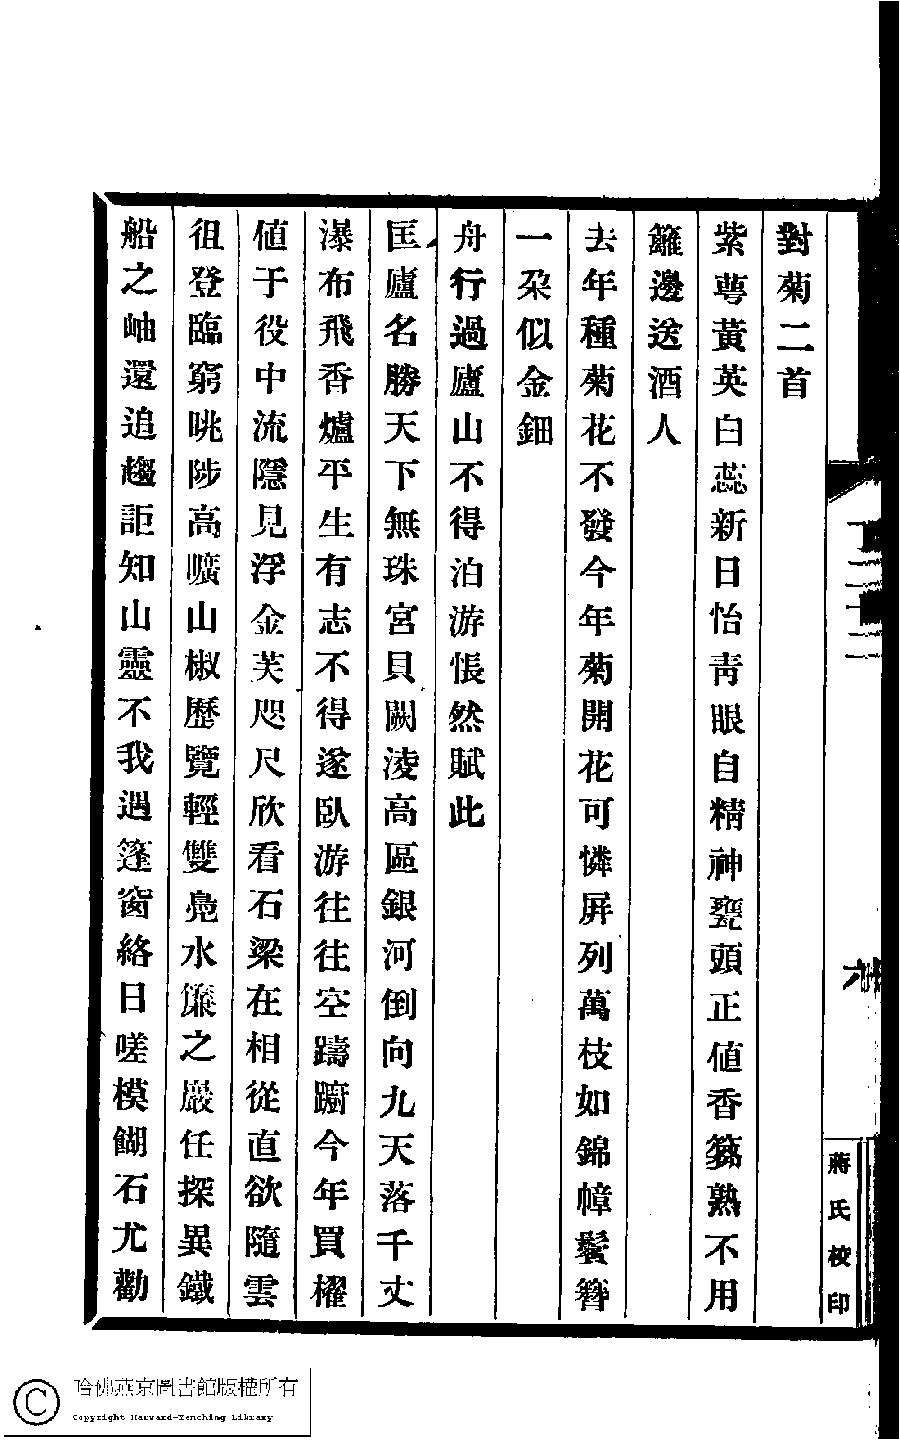 對菊二首
紫萼黃英白蕊新日怡靑眼自精神甕頭正値香篘熟不用
籬邊送酒人
去年種菊花不發今年菊開花可憐屏列萬枝如錦幛鬢簪
一朶似金鈿
舟行過廬山不得泊游悵然賦此
匡廬名勝天下無珠宮貝闕淩高區銀河倒向九天落千丈
瀑布飛香爐平生有志不得遂臥游往往空躊躕今年買櫂
値于役中流隱見浮金芙咫尺欣看石梁在相從直欲隨雲
徂登臨窮眺陟高曠山椒歷覽輕雙鳧水簾之巖任探異鐵
船之岫還追趨詎知山靈不我遇篷窗絡日嗟模餬石尤勸
蔣氏校印
哈佛燕京圖書館版權所有
Copyright Harvard-Yenching Library